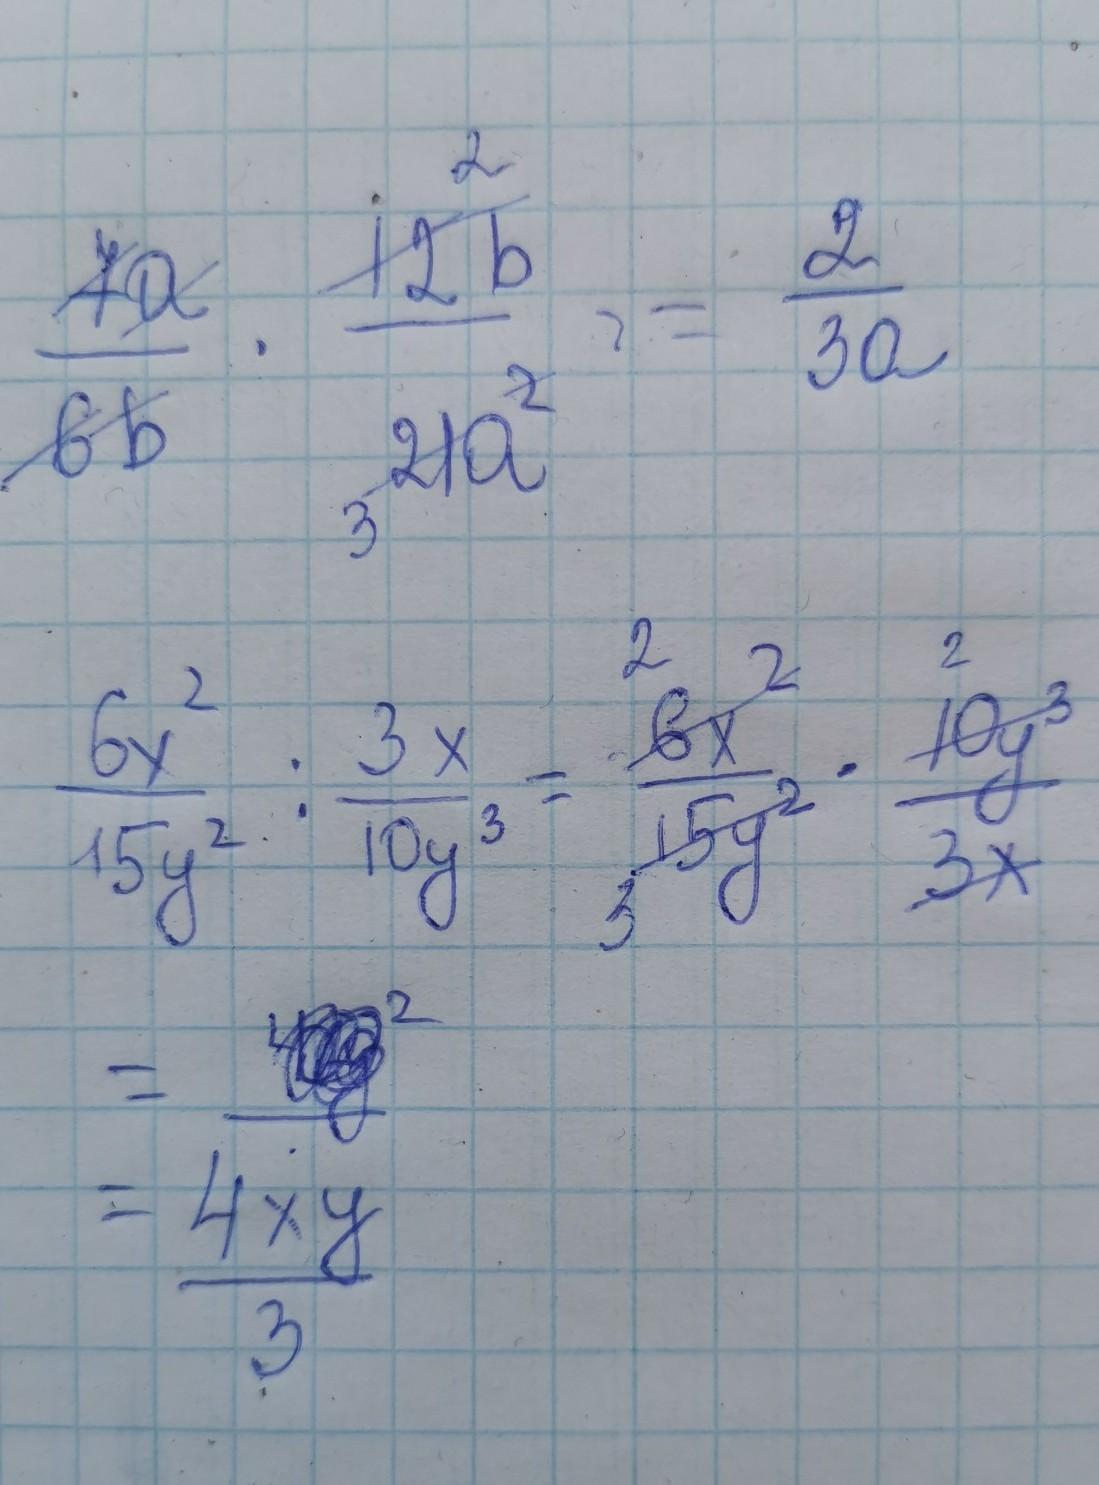 7a/6b · 12b/21a² = 2/3a
2
3
6x²/15y² : 3x/10y³ = 6x²/15y² · 10y³/3x
2 2
3
=
= 4xy/3